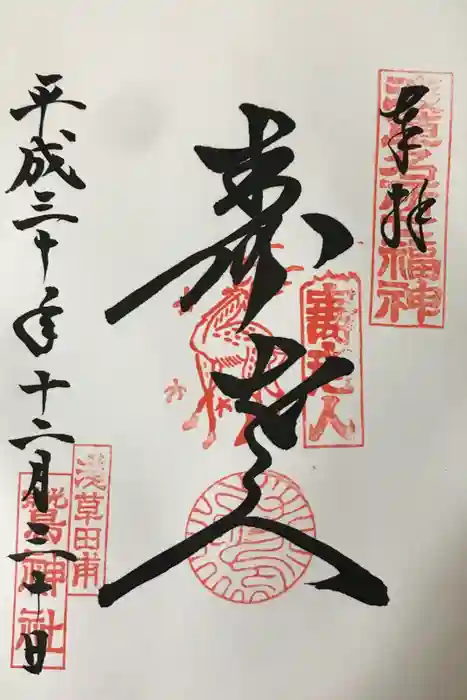 奉拝
浅草名所七福神
寿老人
壽老人
平成三十年十二月三十日
浅草田甫
鷲神社